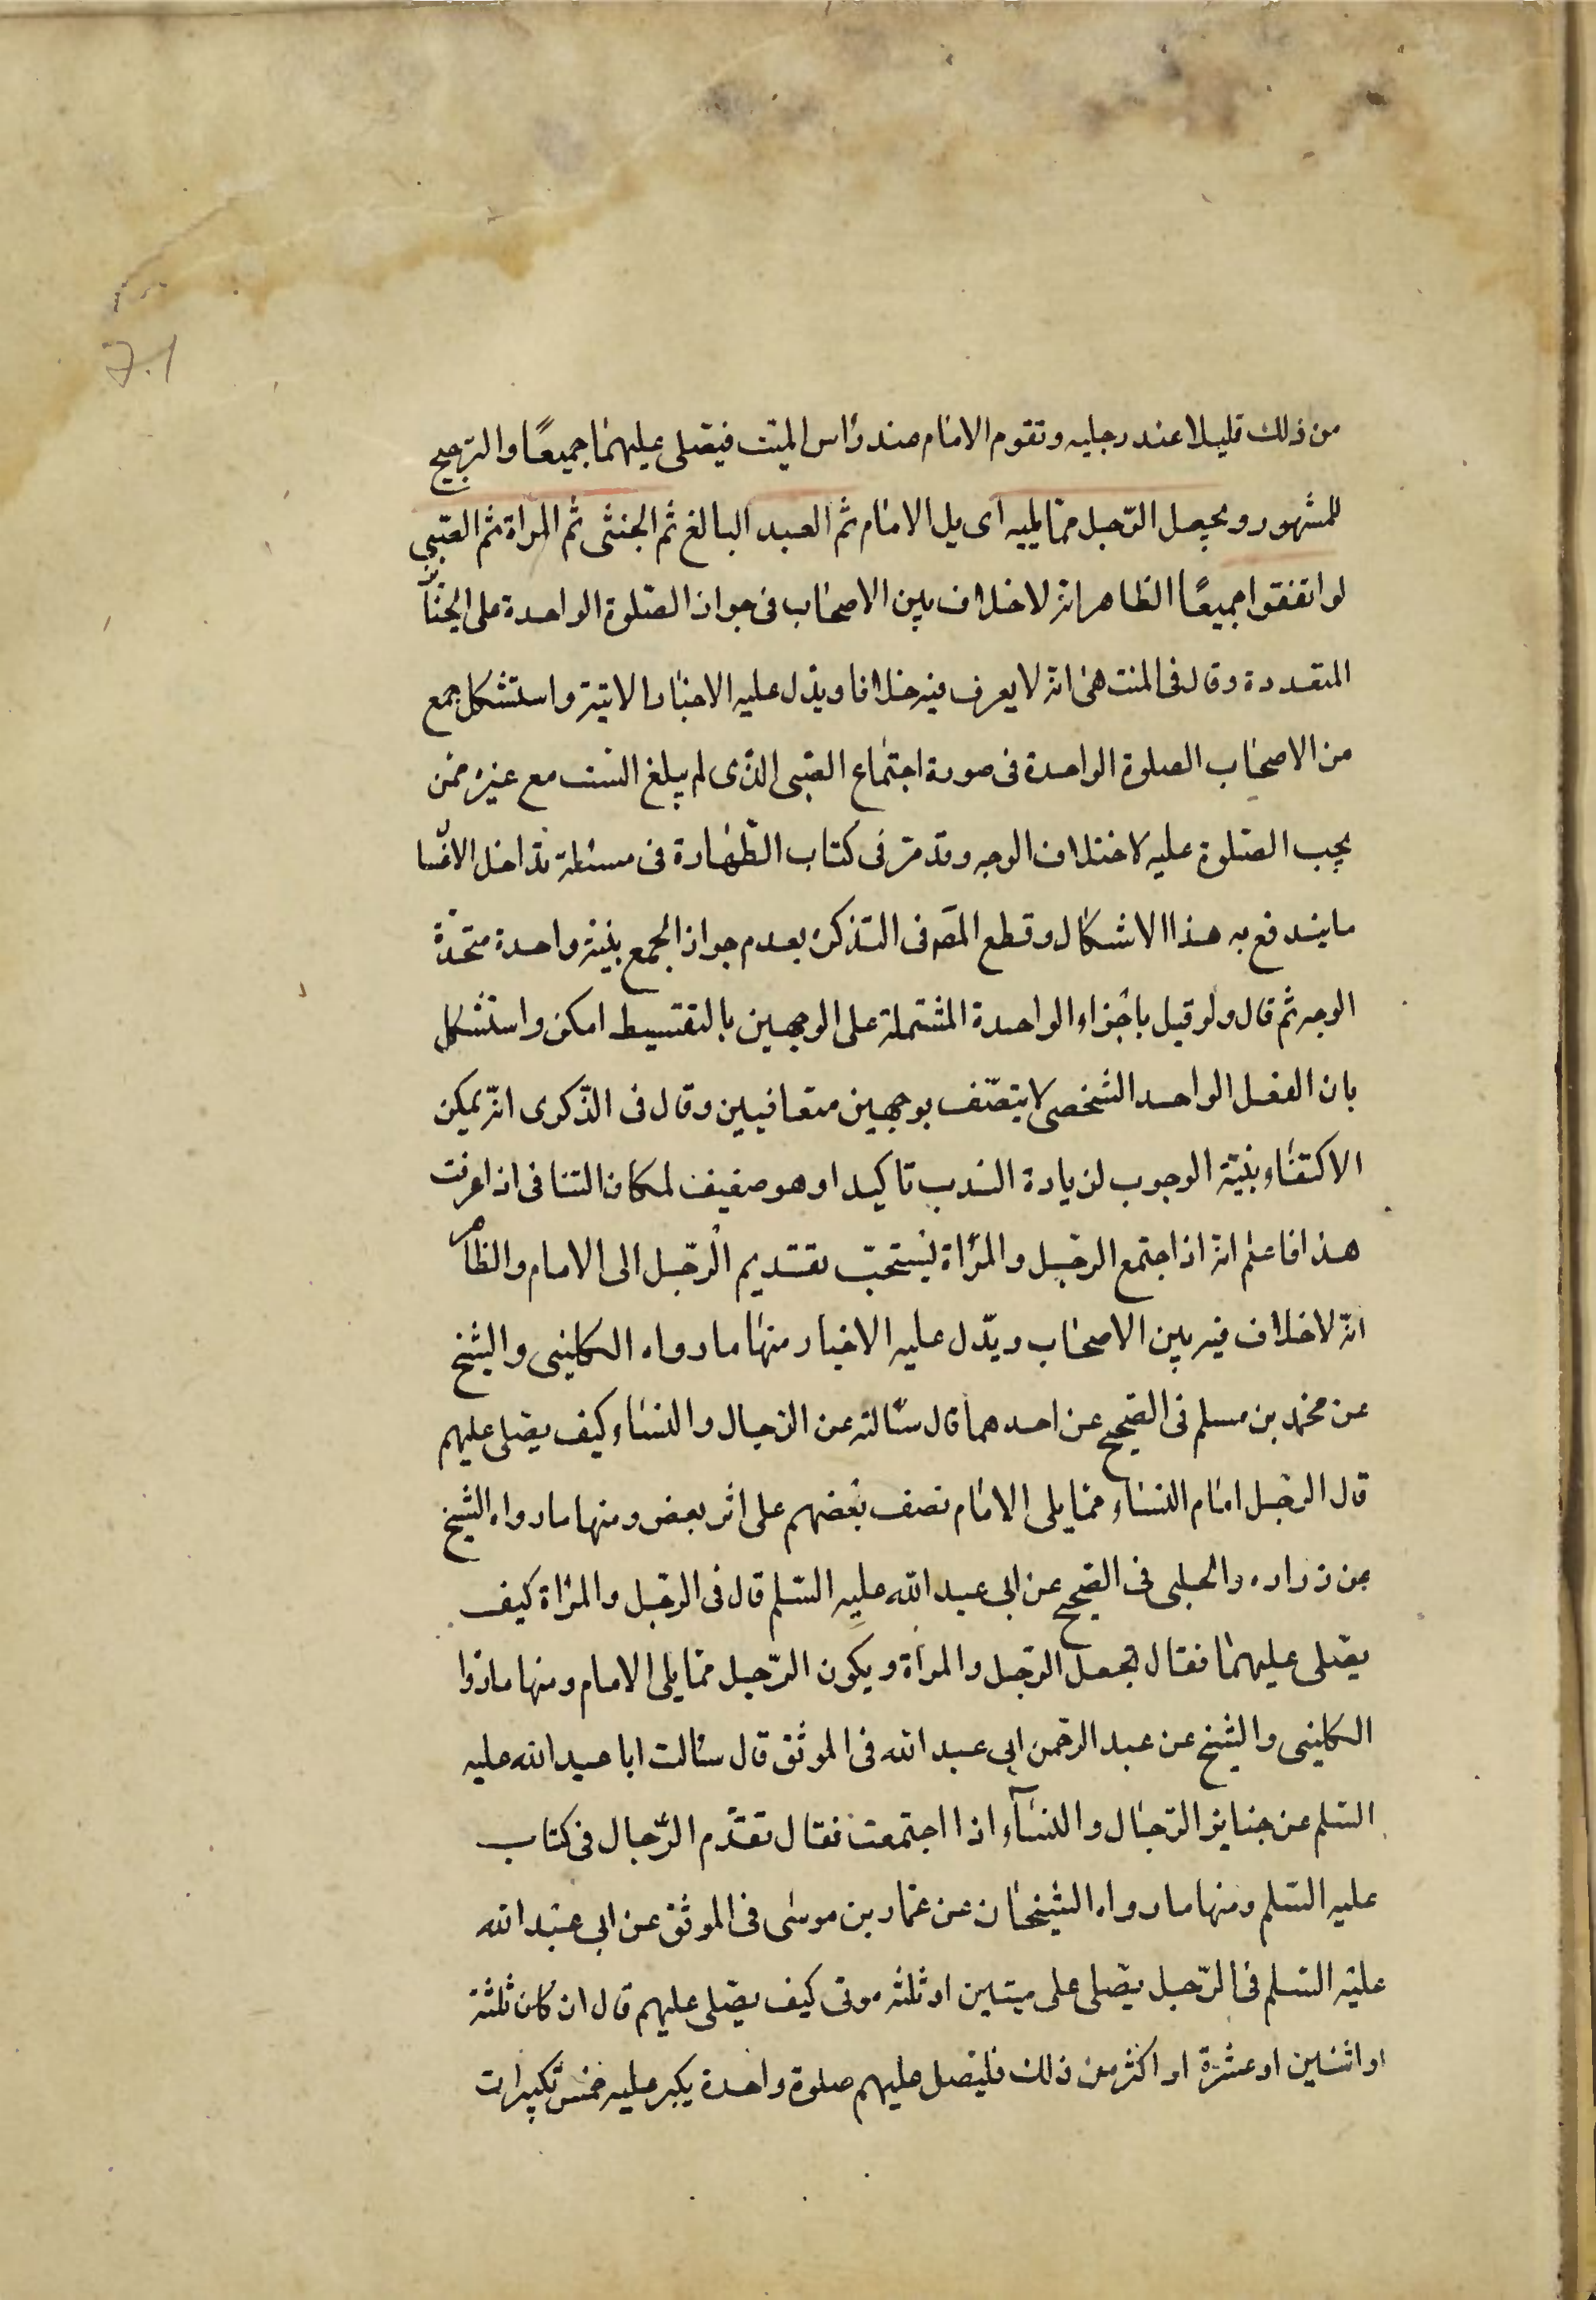 من ذلك قليلا عند رجليه وتقوم الامام عند راس الميت فيصلى عليهما جميعًا والترجيح
للمشهور ويجعل الرّجل ممّا يليه اى يل الامام ثم العبد البالغ ثم الخنثى ثم المراة ثم الصّبى
لو اتفقوا جميعًا الظاهر انه لا خلاف بين الاصحاب فى جواز الصّلوة الواحدة على الجنائز
المتعددة وقال فى المنتهى انه لا يعرف فيه خلافا ويدل عليه الاخبار الاتية واستشكل جمع
من الاصحاب الصلوة الواحدة فى صورة اجتماع الصّبى الذى لم يبلغ الست مع غيره ممّن
يجب الصّلوة عليه لاختلاف الوجه وقد مرّ فى كتاب الطّهارة فى مسئلة تداخل الاغسا
ما يندفع به هذا الاشكال وقطع المص فى التذكرة بعدم جواز الجمع بنيّة واحدة متحدة
الوجه ثم قال ولو قيل باجزاء الواحدة المشتملة على الوجهين بالتقسيط امكن واستشكل
بان الفعل الواحد الشخصى لا يتصّف بوجهين متعافيين وقال فى الذّكرى انّه يمكن
الاكتفاء بنيّة الوجوب لزيادة الندب تاكيدا وهو ضعيف لمكان التنافى اذا عرفت
هذا فاعلم انه اذا اجتمع الرجل والمراة يستحبّ تقديم الرّجل الى الامام والظاهر
انّه لا خلاف فيه بين الاصحاب ويدّل عليه الاخبار منها ما رواه الكلينى والشيخ
عن محمّد بن مسلم فى الصّحيح عن احدهما قال سالته عن الرجال والنساء كيف يصلى عليهم
قال الرّجل امام النساء ممّا يلى الامام نصف بعضهم على اثر بعض ومنها ما رواه الشيخ
عن زراره والحلبى فى الصّحيح عن ابى عبد الله عليه السّلم قال فى الرجل والمراة كيف
يصّلى عليهما فقال تجعل الرّجل والمراة ويكون الرّجل ممّا يلى الامام ومنها ما روا
الكلينى والشيخ عن عبد الرحمن ابى عبد الله فى الموثق قال سالت ابا عبد الله عليه
السّلم عن جنايز الرّجال والنسآء اذا اجتمعت فقال تقدّم الرّجال فى كتاب
عليه السّلم ومنها ما رواه الشيخان عن عمّار بن موسى فى الموثق عن ابى عبد الله
عليه السّلم فى الرّجل يصّلى على ميتين او ثلثه موتى كيف يصّلى عليهم قال ان كان ثلثة
او اثنين او عشرة او اكثر من ذلك فليصل عليهم صلوة واحدة يكبر عليه خمس تكبيرات